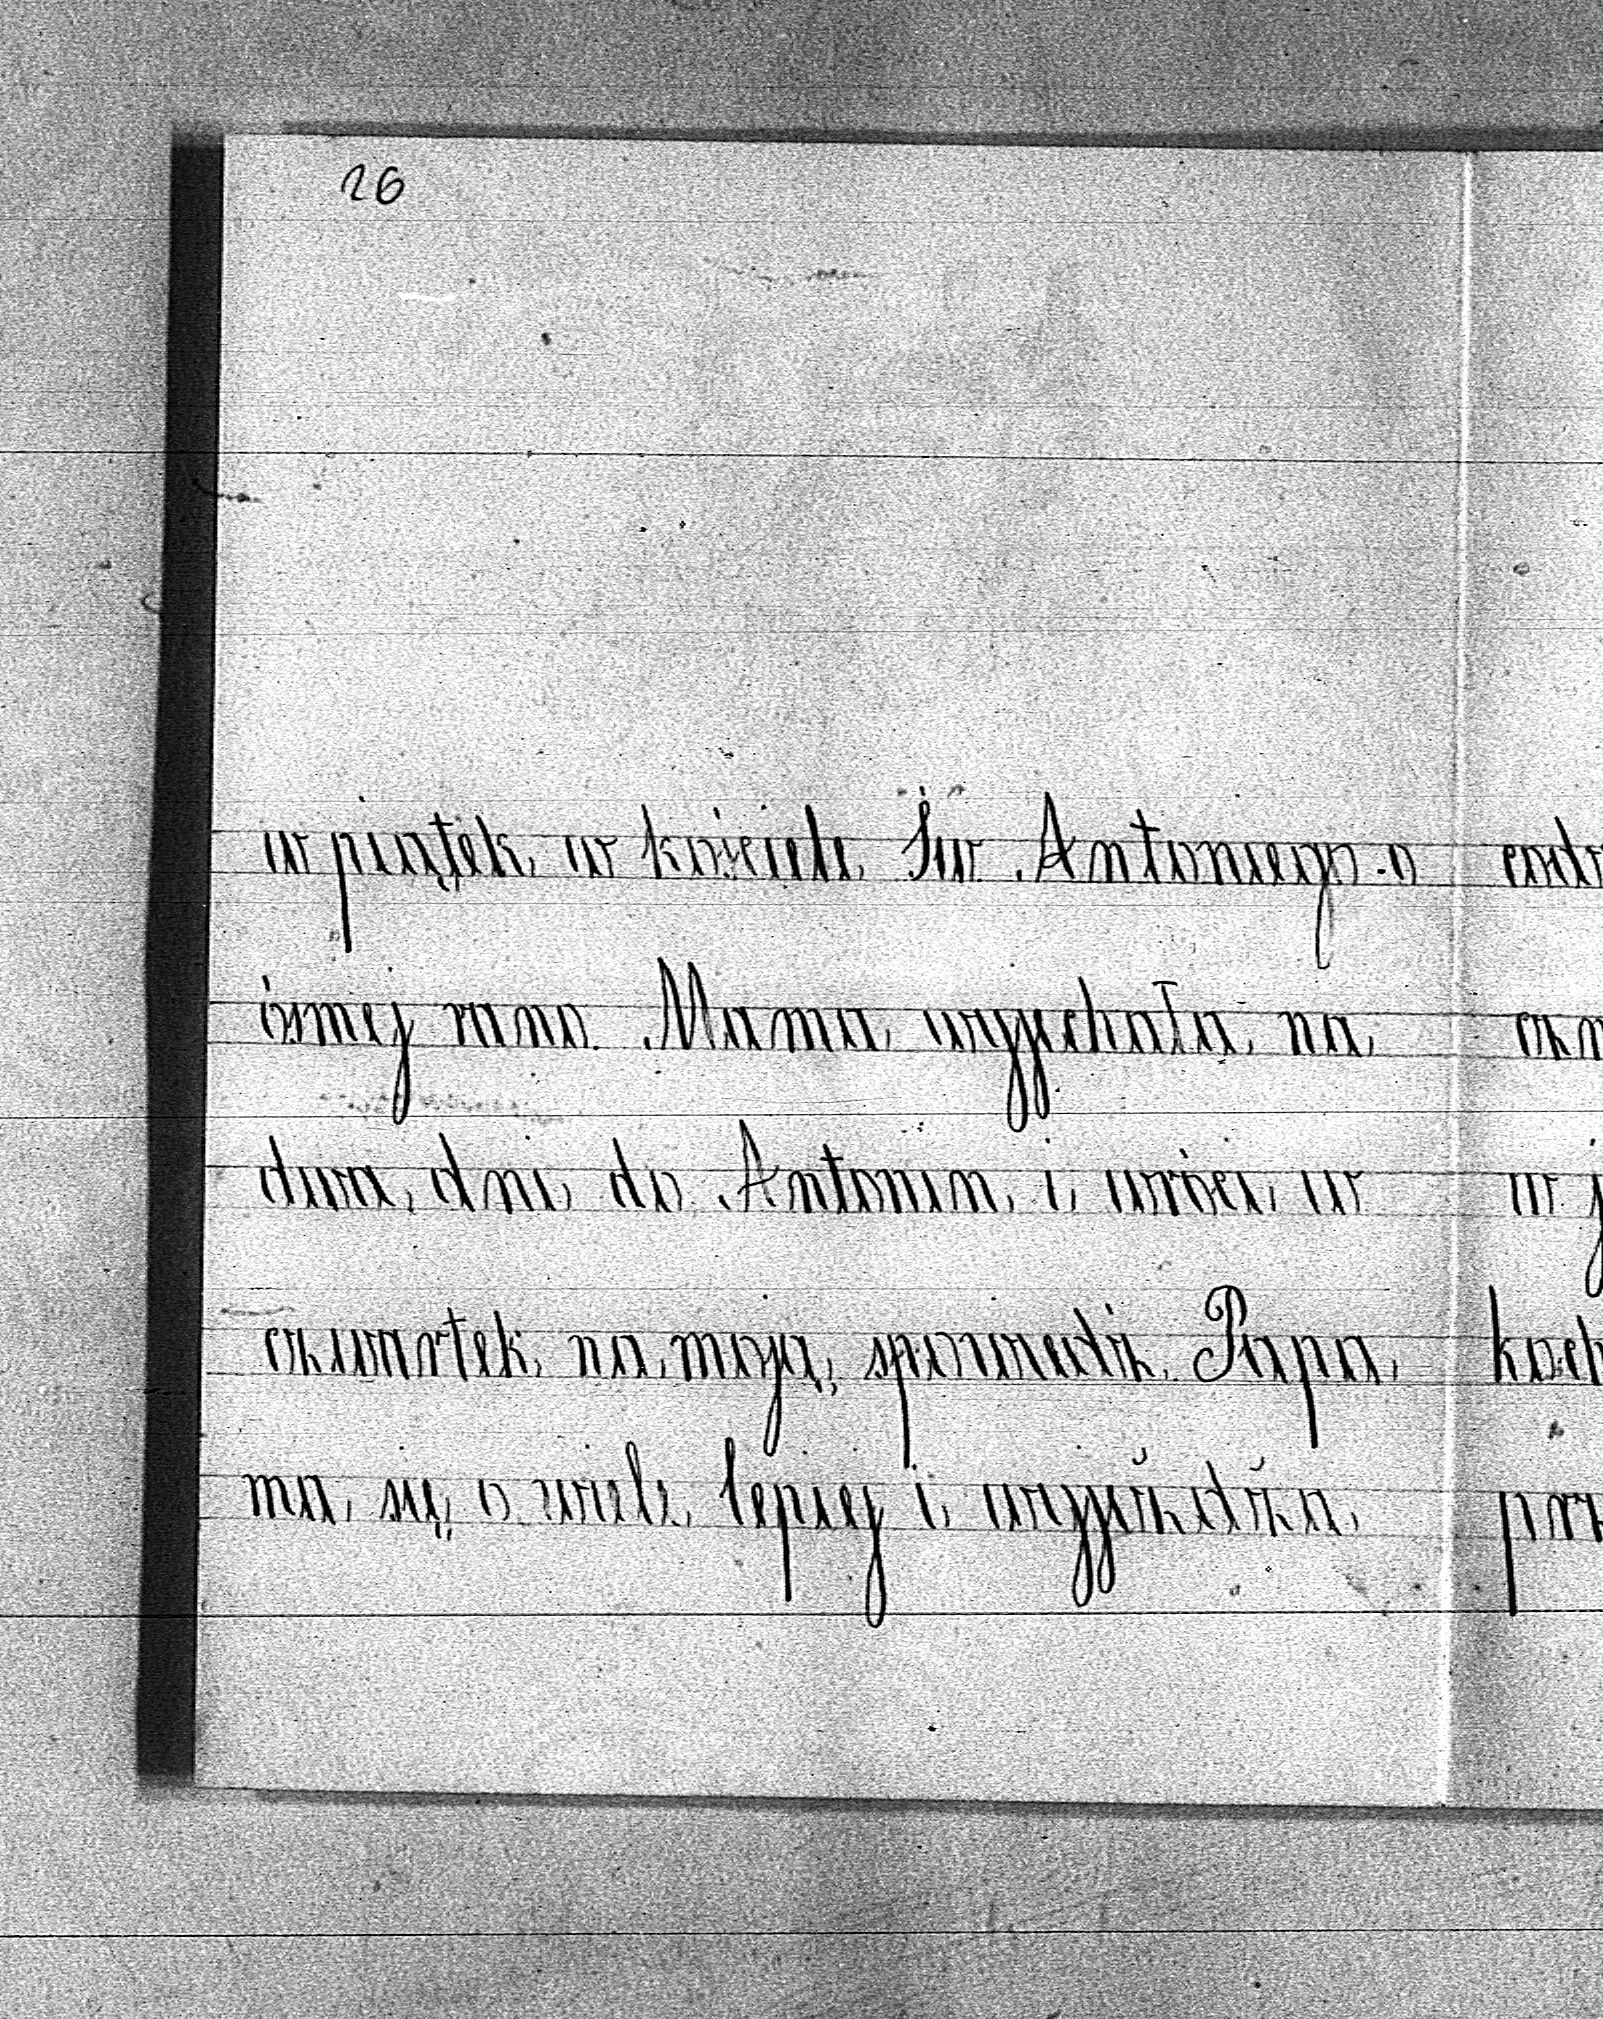 26
w piątek w kościele Św Antoniego o
ósmej rano. Mama wyjechała na
dwa dni do Antonin i wróci w
czwartek na moją spowiedź. Papa
ma się o wiele lepiej i wyjeżdża